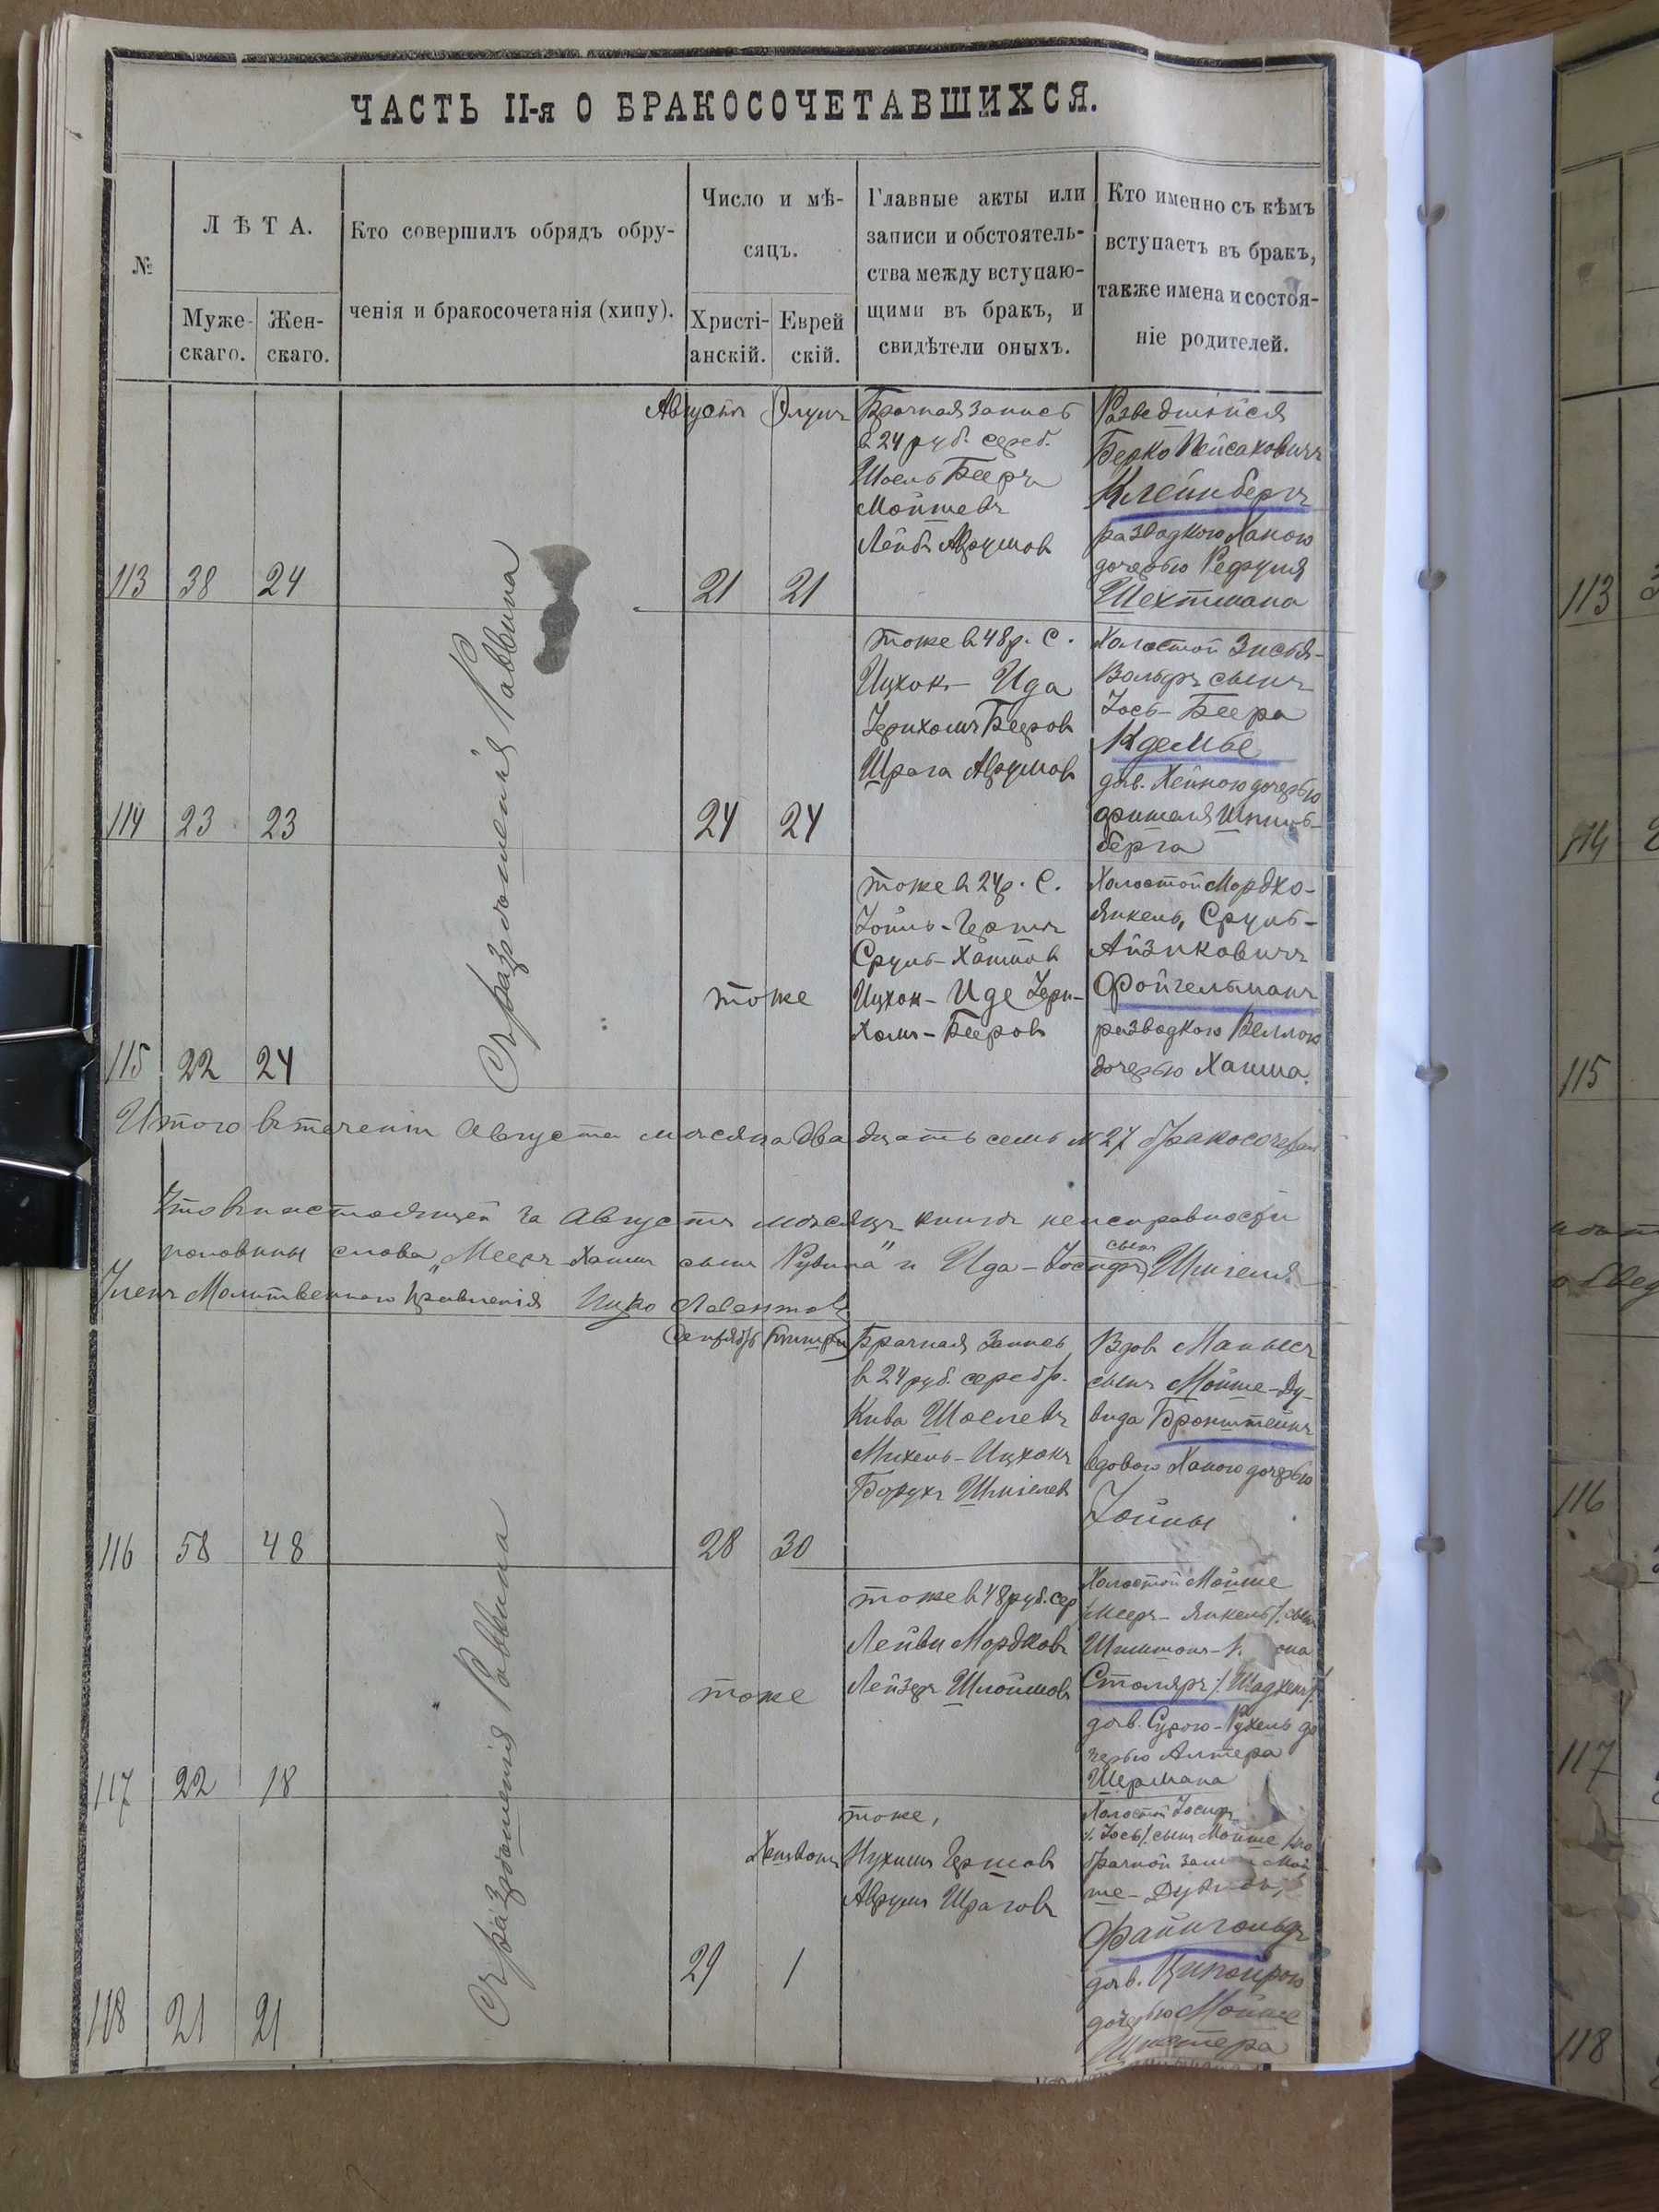 ЧАСТЬ II-я О БРАКОСОЧЕТАВШИХСЯ.
№
ЛѢТА.
Муже-
скаго.
Жен-
скаго.
Кто совершилъ обрядъ обру-
ченія и бракосочетанія (хипу).
Число и мѣ-
сяцъ.
Христі-
анскій.
Еврей
скій.
Главные акты или
записи и обстоятель-
ства между вступаю-
щими въ бракъ, и
свидѣтели оныхъ.
Кто именно съ кѣмъ
вступаетъ въ бракъ,
также имена и состоя-
ніе родителей.
113 38 24
Съ разрѣшенія Раввина
Августъ Элулъ
21 21
Брачная запись
в 24 руб. сереб.
Шоель Бееръ
Мойшевъ
Лейбъ Аврумов
Разведшійся
Берко Пейсаковичъ
Клейнбергъ
разводкою Ханою
дочерью Рефуля
Шехтмана
114 23 23
24 24
тоже в 48 р. С.
Ицхок - Ида
Іерихомъ Бееров
Шрага Аврумов
Холостой Зисья-
Вольфъ сынъ
Іось - Беера
Кделье
дѣв. Хейною дочерью
Фишеля Шпиль-
берга
115 22 24
тоже
тоже в 24 р. С.
Іойлъ - Гершъ
Сруль - Хаимов
Ицхок - Иде Іери-
хомъ - Бееров
Холостой Мордко-
Янкель, Сруль-
Айзиковичъ
Фойгельманъ
разводкою Веллою
дочерью Хаима.
Итого втеченіи Августа мѣсяца двадцать семь № 27 бракосочетан
Что в настоящей за Августъ мѣсяцъ книгѣ неисправности
половины слова „Мееръ Хаимъ сынъ Рувина" и Ида - Іосифъ сынъ Шмгеля
Членъ Молитвеннаго Правленія Ицко
116 58 48
Съ разрѣшенія Раввина
Сентябрь Тишри
28 30
Брачная запись
в 24 руб. серебр.
Кива Шоелевъ
Михель - Ицхокъ
Борухъ Шміелев
Вдов. Манысъ
сынъ Мойше - Ду-
вида Бронштейнъ
вдовою Ханою дочерью
Іойны
117 22 18
тоже
тоже в 48 руб. сер
Лейви Мордков
Лейзеръ Шлоймовъ
Холостой Мойше
/Мееръ - Янкель/ сынъ
Шимшон-
Столяръ /Шадхенъ/
дѣв. Сурою - Рухель до
черью Алтера
Шермана
118 21 21
Хешвонъ
29 1
тоже,
Нухимъ Гершовъ
Аврумъ Шраговъ
Холостой Іосифъ
/Іось/ сынъ Мойше /по
брачной записи Мой
ше -
Файнгольдъ
дѣв. Ципойрою
дочерью Мойше
113
114
115
116
117
118